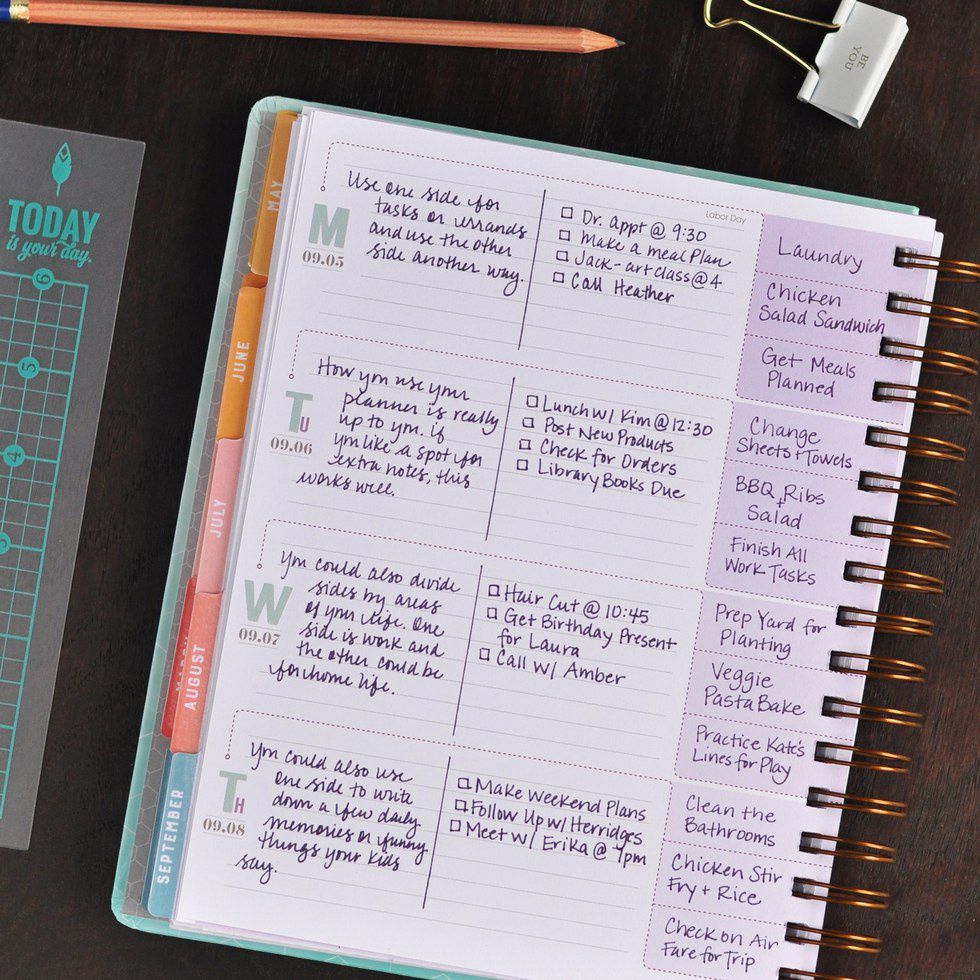 BE
YOU
TODAY
is your day.
6
5
4
3
MAY
JUNE
JULY
MARCH
AUGUST
SEPTEMBER
Labor Day
M
09.05
Use one side for
tasks or errands
and use the other
side another way.
Dr. Appt @ 9:30
Make a meal Plan
Jack - art class @ 4
Call Heather
Laundry
Chicken
Salad Sandwich
Get Meals
Planned
TU
09.06
How you use your
planner is really
up to you. if
you like a spot for
extra notes, this
works well.
Lunch w/ Kim @ 12:30
Post New Products
Check for Orders
Library Books Due
Change
Sheets + Towels
BBQ Ribs
+
Salad
Finish All
Work Tasks
W
09.07
You could also divide
sides by areas
of your life. One
side is work and
the other could be
for home life.
Hair Cut @ 10:45
Get Birthday Present
for Laura
Call w/ Amber
Prep Yard for
Planting
Veggie
Pasta Bake
Practice Kate's
Lines for Play
TH
09.08
You could also use
one side to write
down a few daily
memories or funny
things your kids
say.
Make Weekend Plans
Follow Up w/ Herridges
Meet w/ Erika @ 7pm
Clean the
Bathrooms
Chicken Stir
Fry + Rice
Check on Air
Fare for Trip